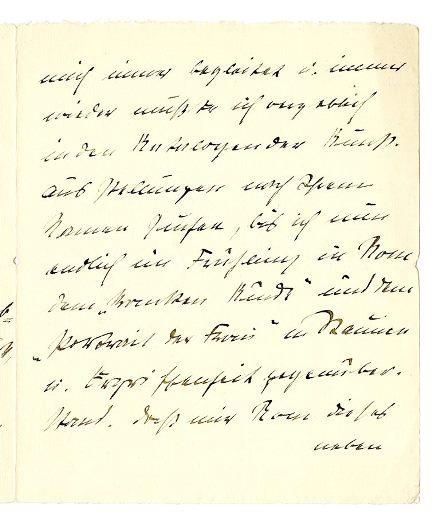 mich immer begleitet u. immer
wieder mußte ich vergeblich
in den Katalogen der Kunst-
ausstellungen nach Ihrem
Namen suchen, bis ich nun
endlich im Frühling in Rom
dem „Kranken Kinde" und dem
„Portrait der Frau" in Staunen
u. Ergriffenheit gegenüber-
stand. Daß mir Rom dieses
neben